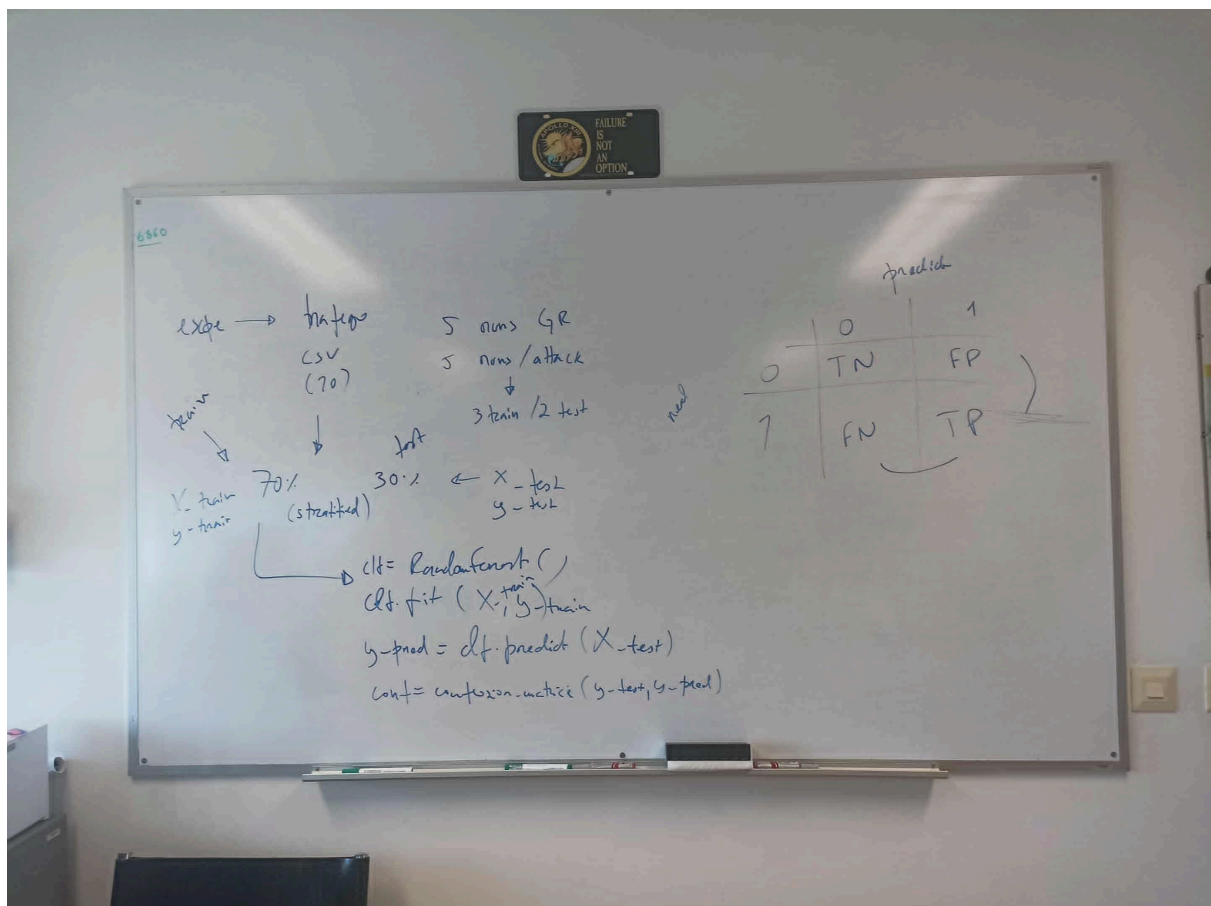 APOLLO XIII
FAILURE
IS
NOT
AN
OPTION
6860
expe → trafego
CSV
(70)
5 runs GR
5 runs/attack
↓
3 train/2 test
train
70%
(stratified)
X_train
y-train
test
30% ← X_test
y-test
clf= RandomForest()
clf.fit (X_train, y_train)
y-pred = clf.predict (X_test)
conf= confusion-matrix (y-test, y-pred)
predict
real
0 1
0 TN FP
1 FN TP